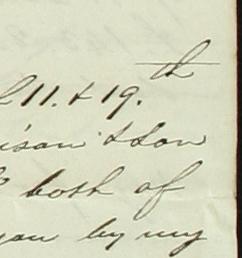 th
11. & 19.
& Son
both of
you by my